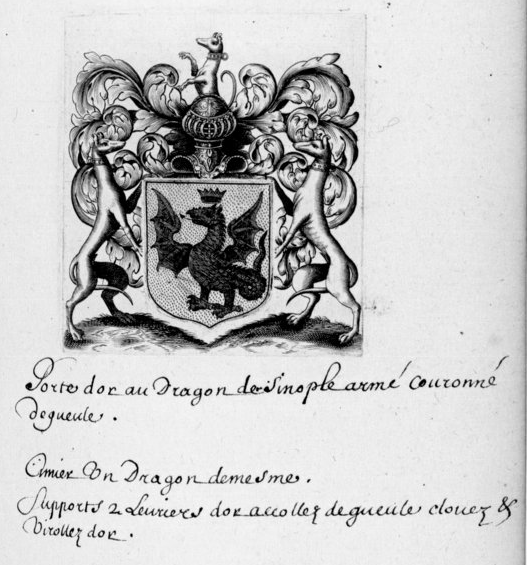 Porte dor au Dragon de Sinople armé couronné
degueule.
Cimier Un Dragon demesme.
Supports 2 Leuriers dor accollez degueule clouez &
Virollez dor.